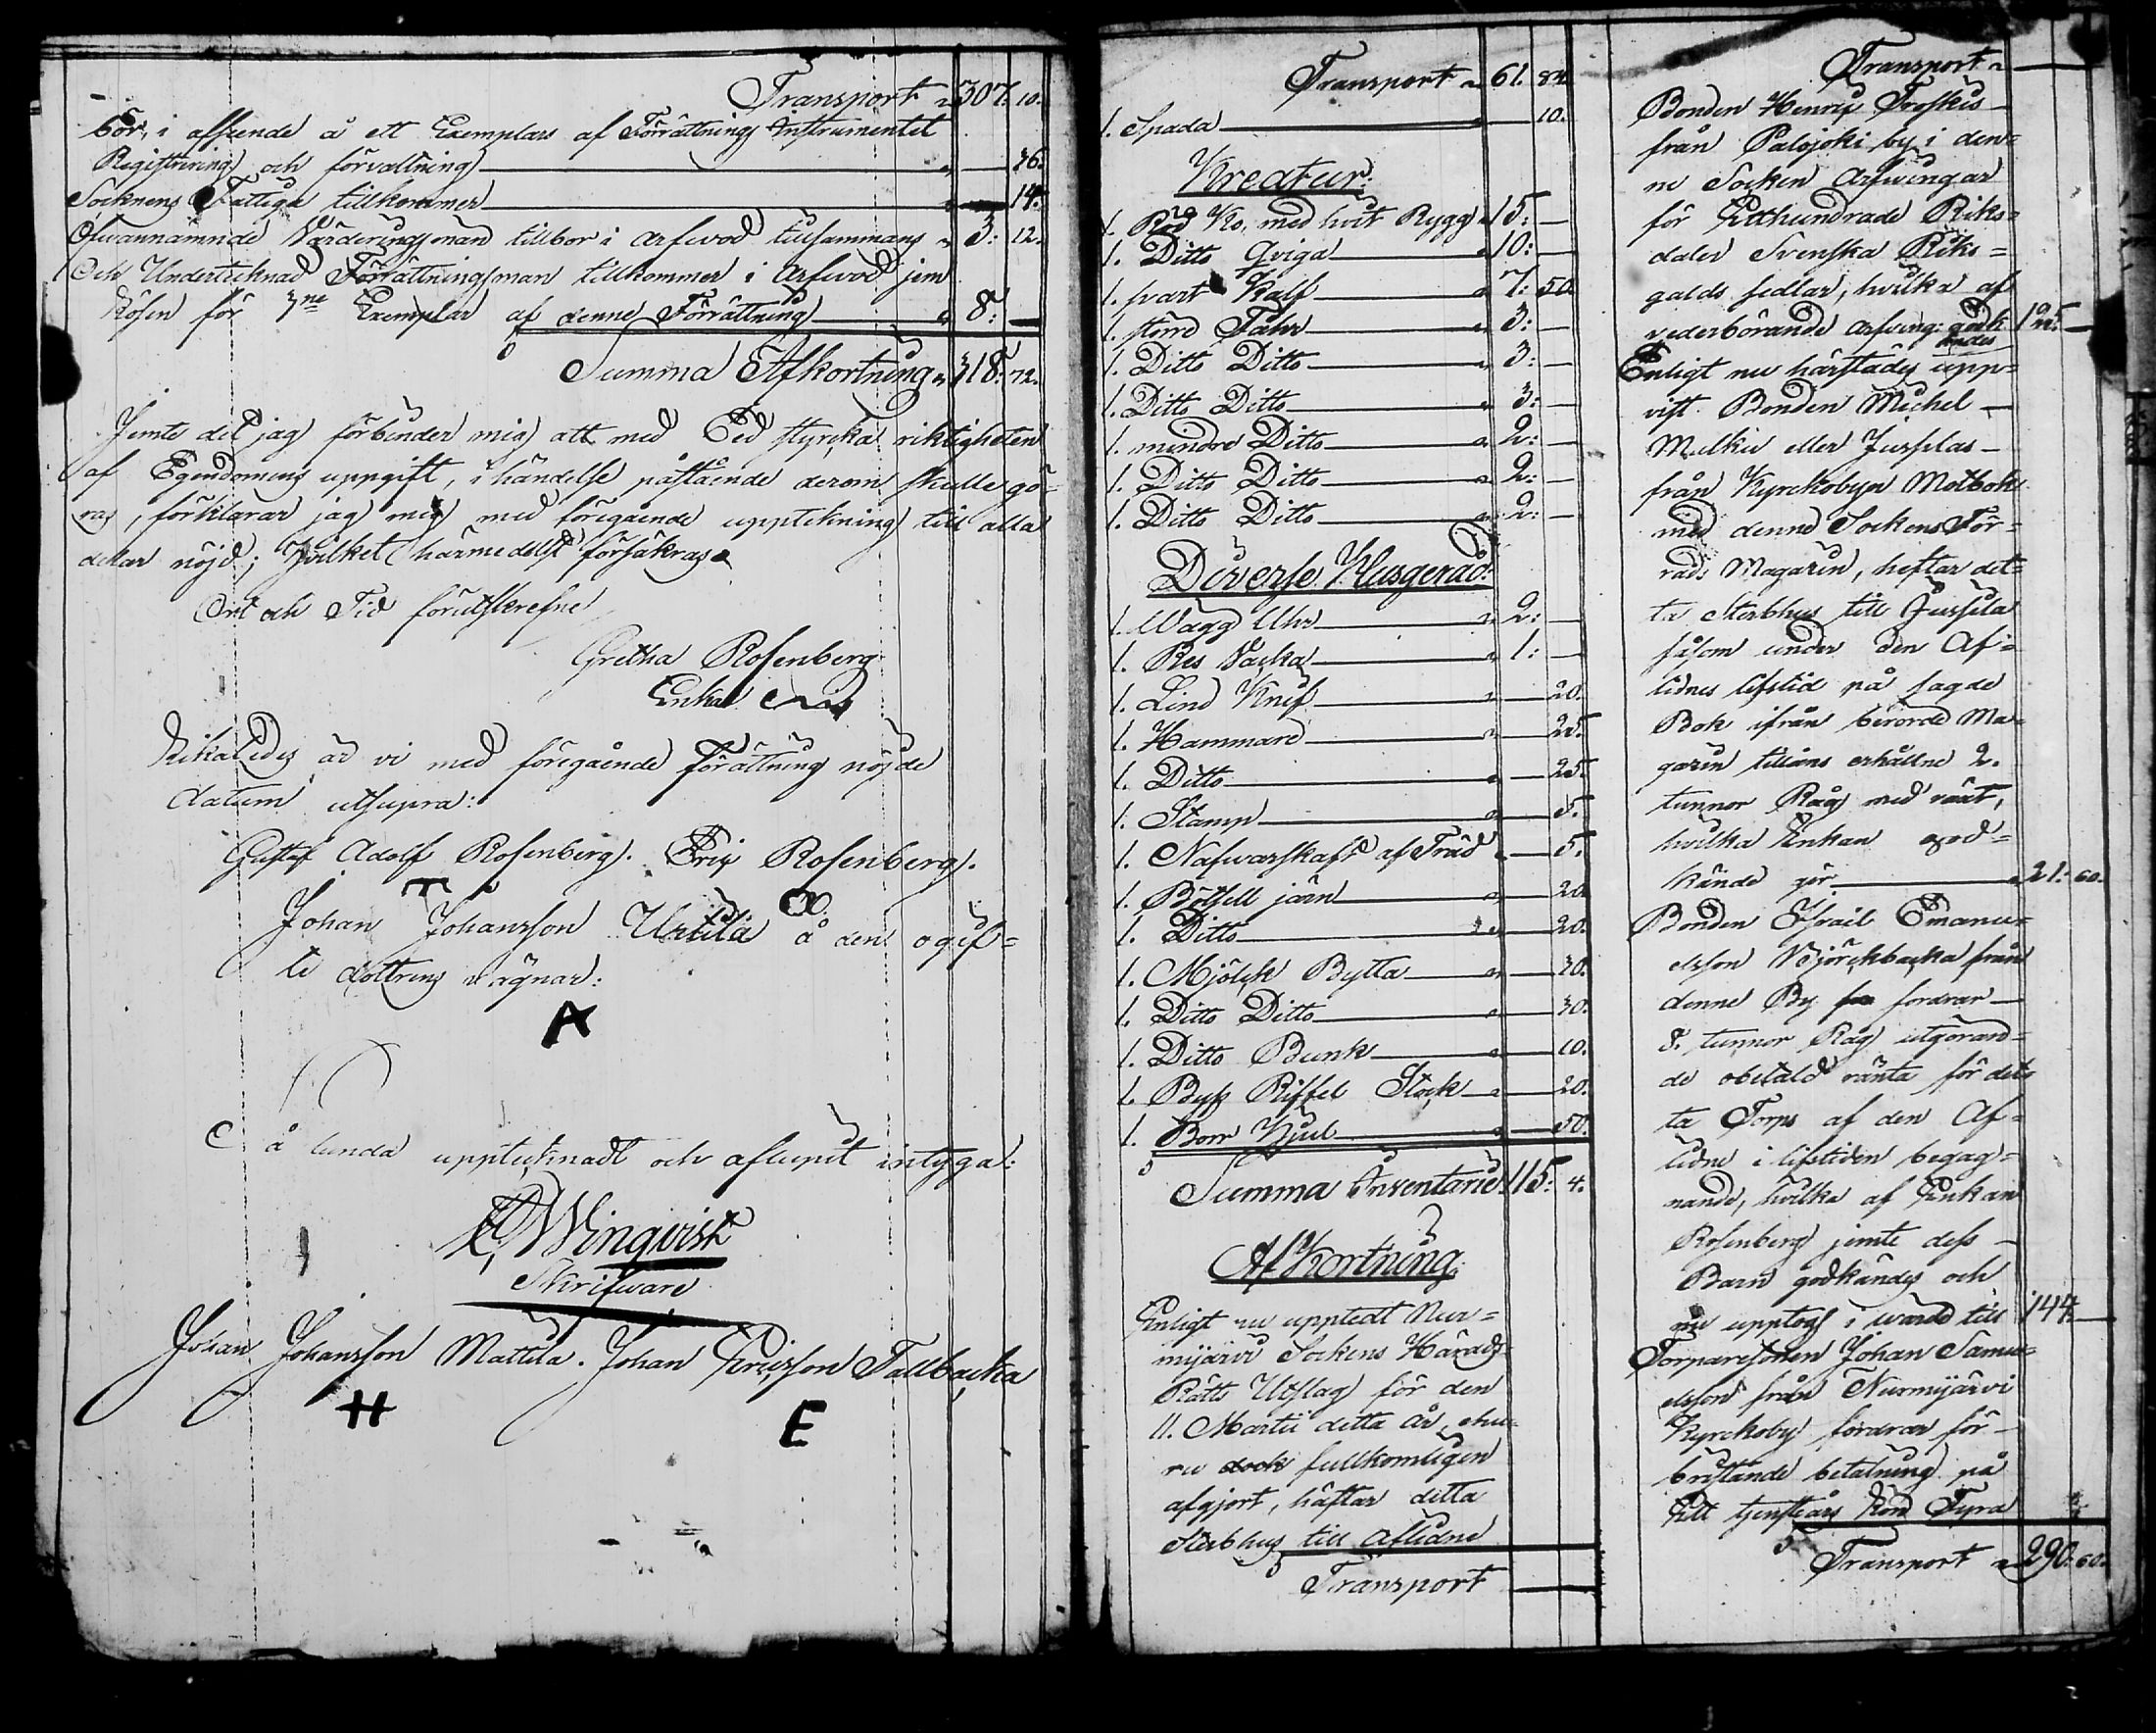 Transport " 307. 10.
bör, i afseende å ett Exemplars af Förrättnings Instrumentet
Registrering och förvaltning " — 36.
Socknens Fattiga tillkommer " — 14.
Ofwannämnde Värderingsmän tillbör i arfwod tillsammans " 3: 12.
Och Undertecknad Förrättningsman tillkommer i Arfwod jem
lösen för 3ne Exemplar af denne Förrättning " 8: —
Summa Afkortning " 318: 72.
Jemte det jag förbinder mig att med Ed styrka riktigheten
af Egendomens uppgift, i händelse påstående derom skulle gö-
ras, förklarar jag mig med föregående uppteckning till alla
delar nöjd; Hvilket härmedelst försäkras
Ort och Tid förutskrefne
Gretha Rosenberg
Enka
Likaledes är vi med föregående förättning nöjde
datum utsupra:
Gustaf Adolf Rosenberg. Eric Rosenberg.
Johan Johansson Uotila å den ogif=
te dottrens vägnar:
A
Så lunda upptecknadt och aflupit intyga:
Winqvist
Skrifware
Johan Johansson Mattila. Johan Ericsson Tallbacka
H E
Transport " 61. 84.
1. Spada — 10.
Kreatur:
1. Röd Ko, med hvit Rygg " 15: —
1. Ditto Qviga " 10: —
1. svart Kalf " 7: 50.
1. större Fåhr " 3: —
1. Ditto Ditto " 3: —
1. Ditto Ditto " 3: —
1. mindre Ditto " 2: —
1. Ditto Ditto " 2: —
1. Ditto Ditto " 2: —
Diverse Husgeråd:
1. Wägg Uhr " 2: —
1. Res Väska " 1: —
1. Lind Knif " — 20.
1. Hammare " — 25.
1. Ditto " — 25.
1. Stamp " — 5.
1. Nafwarskaft af Träd " — 5.
1. Böhll järn " — 20.
1. Ditto " — 20.
1. Mjölck Bytta " — 30.
1. Ditto Ditto " — 30.
1. Ditto Bunk " — 10.
1. Byss Riffel Stock " — 20.
1. Borr Hjul " — 50.
Summa Inventarie 115: 4.
Afkortning:
Enligt nu upptedt Nur=
mijärvi Sockens Härads
Rätts Utslag för den
11. Martii detta år, ehu-
ru dock fullkomligen
afgjort, häftar detta
Sterbhus till Aflidne
Transport —
Transport " —
Bonden Henric Troskis
från Palojoki by i den=
ne Socken Arfwingar
för Etthundrade Riks=
daler Svenska Riks=
galds sedlar, hvilka af
vederbörande arfwing: godk
ändes 125. —
Enligt nu härstädes upp=
vist Bonden Michel
Mulkii eller Jusslas
från Kyrckobyn Motbok
med denne Sockens För=
råds Magazin, häftar det=
ta Sterbhus till Jussila
såsom under den Af=
lidnes lifstid på sagde
Bok ifrån berörde Ma-
gazin tillåns erhållne 2.
tunnor Råg med växt,
hvilka Enkan god=
kände gör " 21: 60.
Bonden Israel Emanu=
elsson Björckbacka från
denne By fordrar
8. tunnor Råg utgörand=
de obetald ränta för det=
ta Torps af den Af=
lidne i lifstiden begag=
nande, hvilka af Enkan
Rosenberg jemte dess
Barn godkändes och
nu upptogs i wärde till 144. —
Torparesonen Johan Samu=
elsson från Nurmijärvi
Kyrckoby fordrar för
bristande betalning på
Ett tjensteårs lön Fyra
Transport " 290. 60.